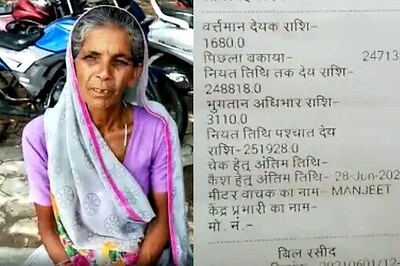 वर्त्तमान देयक राशि-
1680.0
पिछला बकाया- 24713
नियत तिथि तक देय राशि-
248818.0
भुगतान अधिभार राशि-
3110.0
नियत तिथि पश्चात देय
राशि-251928.0
चेक हेतु अंतिम तिथि-
कैश हेतु अंतिम तिथि- 28-Jun-202
मीटर वाचक का नाम- MANJEET
केंद्र प्रभारी का नाम-
मो. नं.-
बिल रसीद